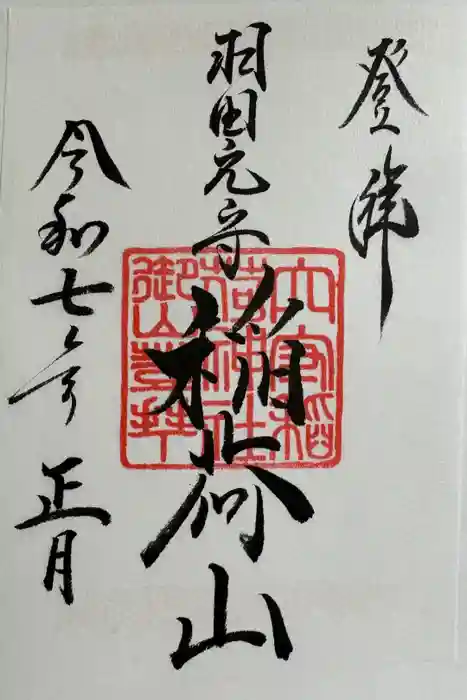 登拝
羽田穴守稲荷山
令和七年正月
穴守稲
荷神社
御山登拝